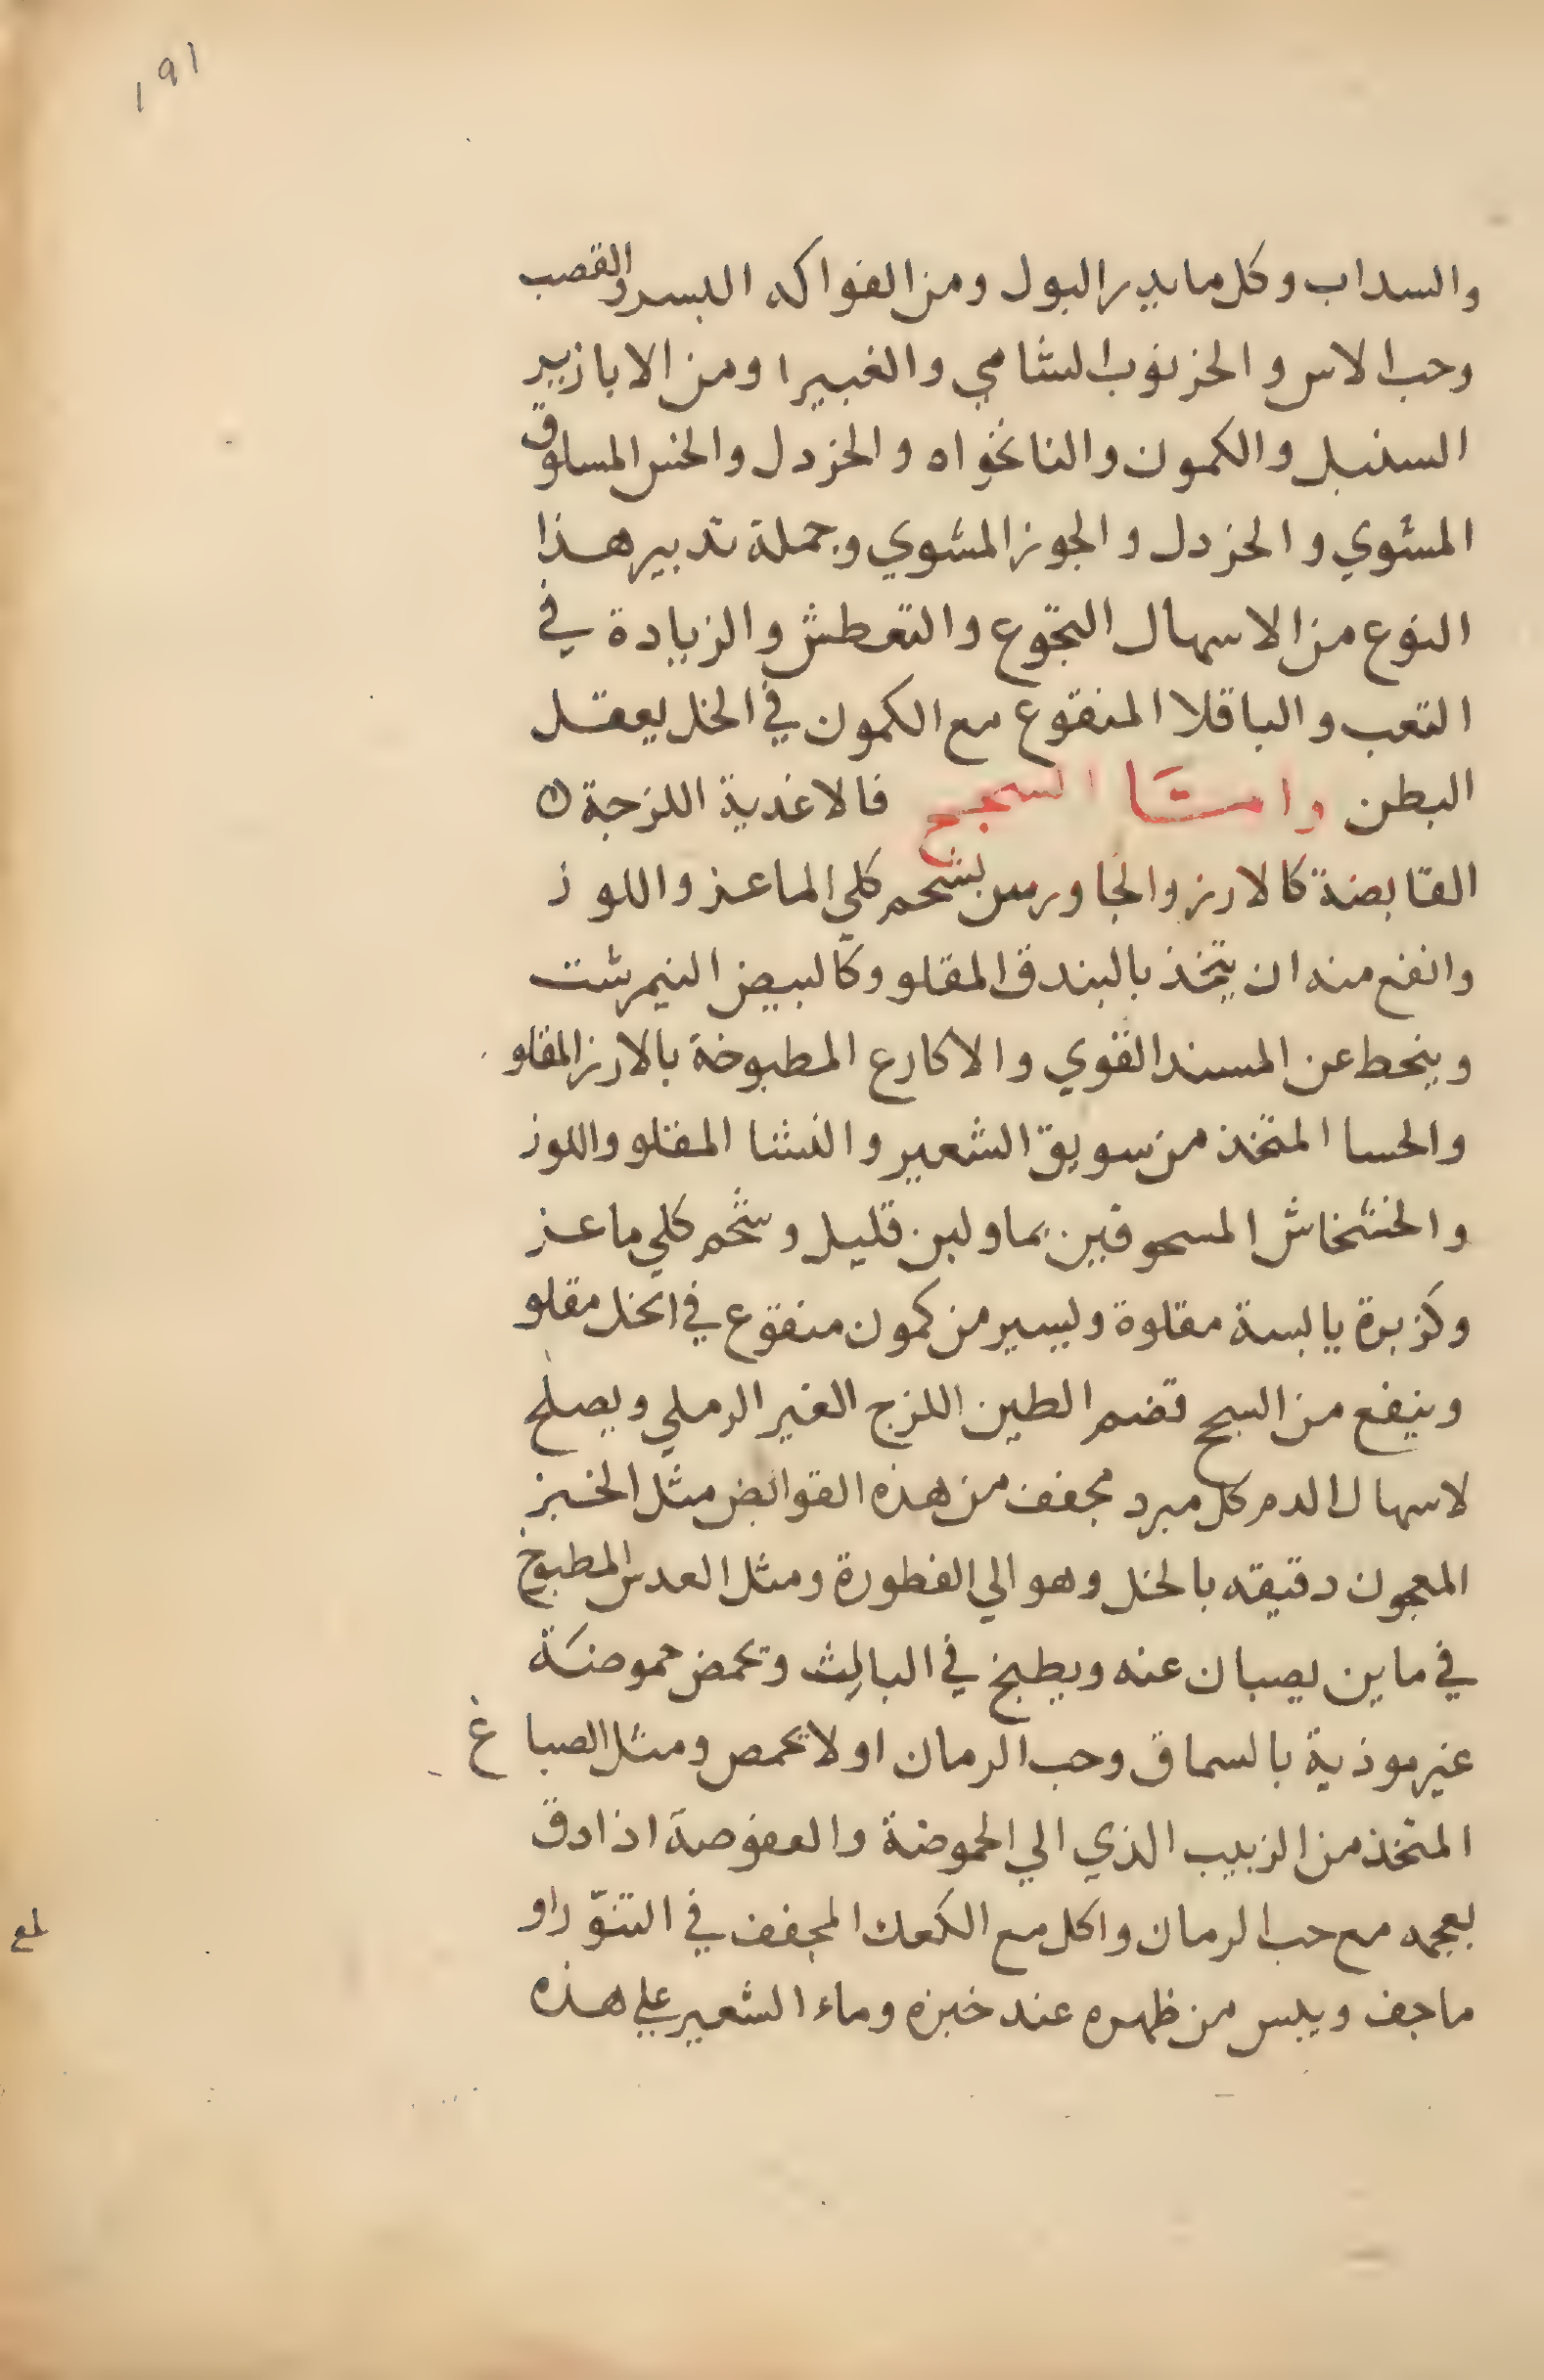 ١٩١
والسداب وكل ما يدر البول ومن الفواكه البسر والقصب
وحب الاس والخرنوب الشامي والغبيرا ومن الابازير
السنبل والكمون والنانخواه والخردل والخس المسلوق
المشوي والخردل والجوز المشوي وجملة تدبير هذا
النوع من الاسهال التجوع والتعطش والزيادة في
التعب والباقلا المنقوع مع الكمون في الخل يعقل
البطن واما السحج فالاغذية اللزجة
القابضة كالارز والجاورس بشحم كلي الماعز واللوز
وانفع منه ان يتخذ بالبندق المقلو وكالبيض النيمرشت
وينحط عن المسند القوي والاكارع المطبوخة بالارز المقلو
والحسا المتخذ من سويق الشعير والنشا المقلو واللوز
والخشخاش المسحوقين بما ولبن قليل وشحم كلي ماعز
وكزبرة يابسة مقلوة ويسير من كمون منقوع في الخل مقلو
وينفع من السحج قضم الطين اللزج الغير الرملي ويصلح
لاسهال الدم كل مبرد مجفف من هذه القوابض مثل الخبز
المعجون دقيقه بالخل وهو الي الفطورة ومثل العدس المطبوخ
في ماين يصبان عنه ويطبخ في الثالث وتحمض حموضة
غير موذية بالسماق وحب الرمان او لا تحمص ومثل الصباغ
المتخذ من الزبيب الذي الي الحموضة والعفوصة اذا دق
بعجمه مع حب الرمان واكل مع الكعك المجفف في التنور او
ما جف ويبس من ظهره عند خبزه وماء الشعير علي هذه